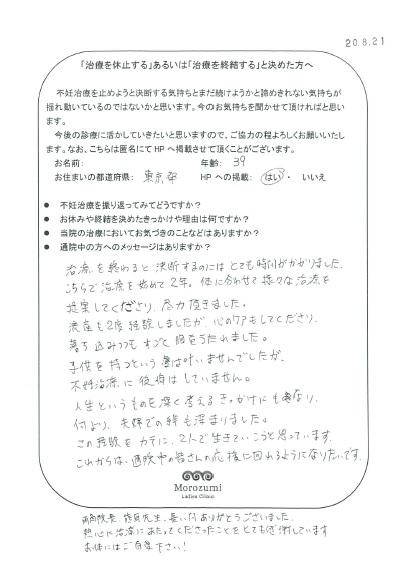 20.8.21
「治療を休止する」あるいは「治療を終結する」と決めた方へ
不妊治療を止めようと決断する気持ちとまだ続けようかと諦めきれない気持ちが
揺れ動いているのではないかと思います。今のお気持ちを聞かせて頂ければと思い
ます。
今後の診療に活かしていきたいと思いますので、ご協力の程よろしくお願いいたし
ます。なお、こちらは匿名にてHPへ掲載させて頂くことがございます。
お名前: 年齢: 39
お住まいの都道府県: 東京都 HPへの掲載: はい・ いいえ
● 不妊治療を振り返ってみてどうですか?
● お休みや終結を決めたきっかけや理由は何ですか?
● 当院の治療においてお気づきのことなどはありますか?
● 通院中の方へのメッセージはありますか?
治療を終わると決断するのにはとても時間がかかりました。
こちらで治療を始めて2年。体に合わせて様々な治療を
提案してくださり、尽力頂きました。
流産も2度経験しましたが、心のケアもしてくださり、
落ち込みつつもすごく胸をうたれました。
子供を持つという夢は叶いませんでしたが、
不妊治療に後悔はしていません。
人生というものを深く考えるきっかけにもなり、
何より、夫婦での絆も深まりました。
この経験をカテに、2人で生きていこうと思っています。
これからは、通院中の皆さんの応援に回れるようになりたいです。
Morozumi
Ladies Clinic
両角院長、先生、長い間ありがとうございました。
熱心に治療にあたってくださったことをとても感謝しています
お体にはご自愛下さい!